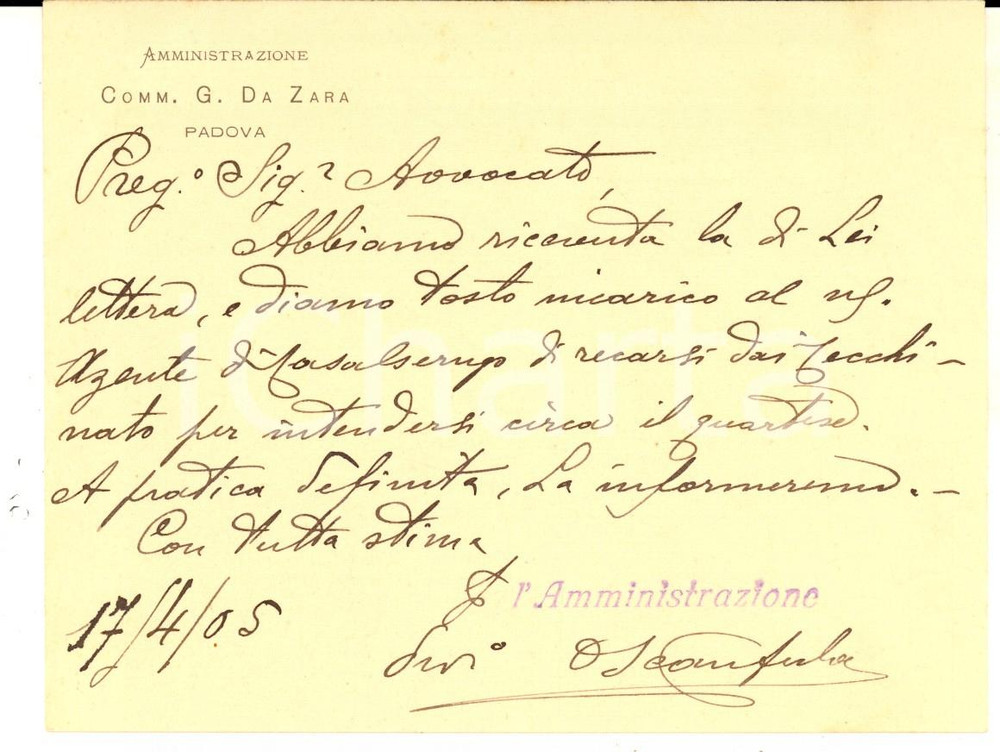 AMMINISTRAZIONE
COMM. G. DA ZARA
PADOVA
Preg.º Sig.r Avvocato,
Abbiamo ricevuta la di Lei
lettera, e diamo tosto incarico al ns.
Agente di Casalserugo di recarsi dai Cecchi-
nato per intendersi circa il quartese.
A pratica definita, La informeremo.-
Con tutta stima
17/4/05
p l'Amministrazione
iCharta